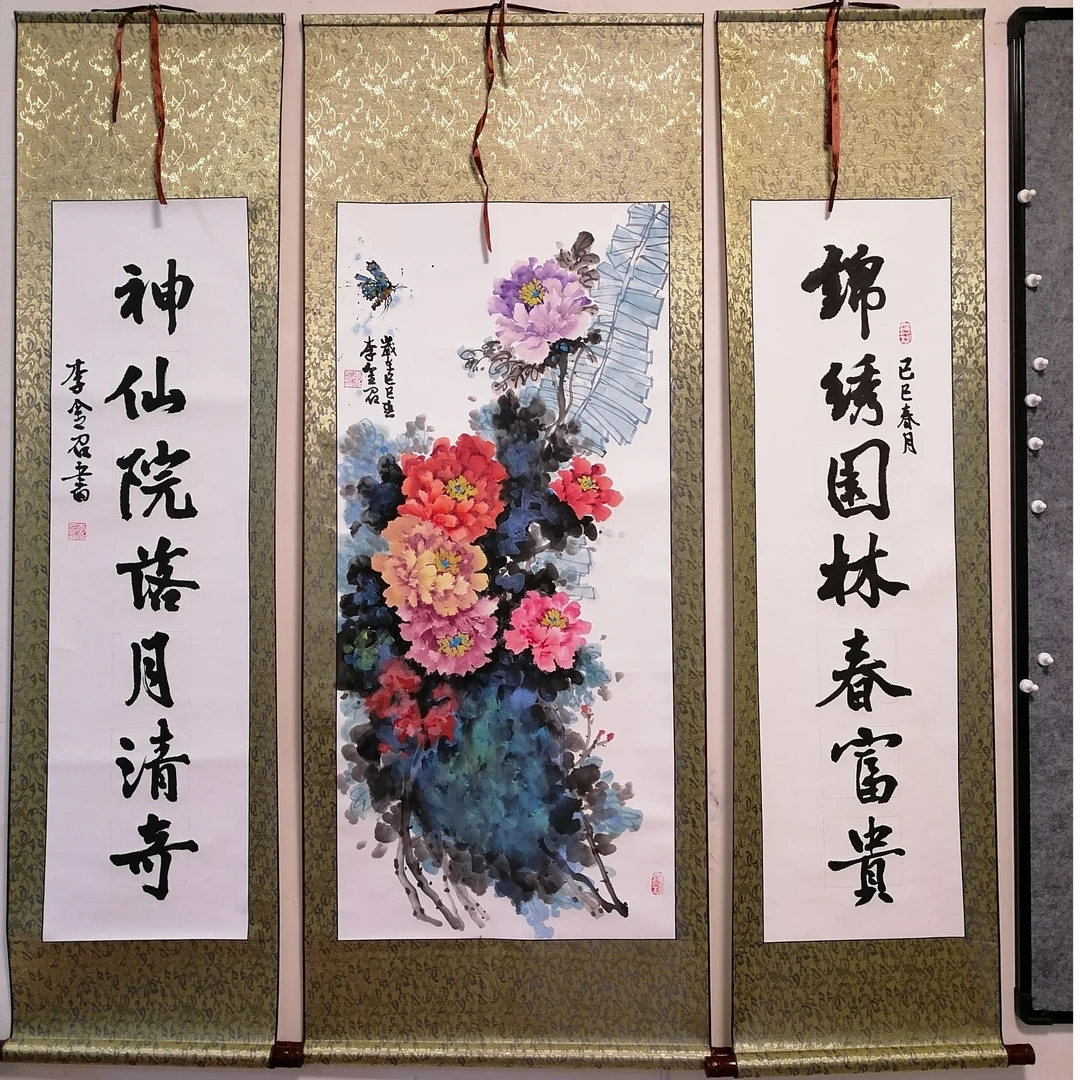 己巳春月
錦绣园林春富貴
歲在己巳春
李金召
神仙院落月清奇
李金召書